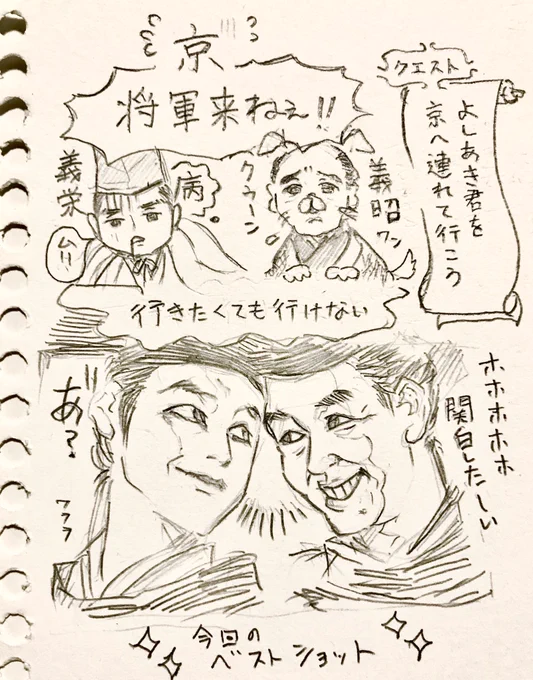 京
将軍来ねぇ!!
クエスト
よしあき君を
京へ連れて行こう
義昭
ワン
クゥーン
病
義栄
ムリ
行きたくても行けない
あ?
フフフ
ホホホホホ
関白したーい
今回の
ベストショット